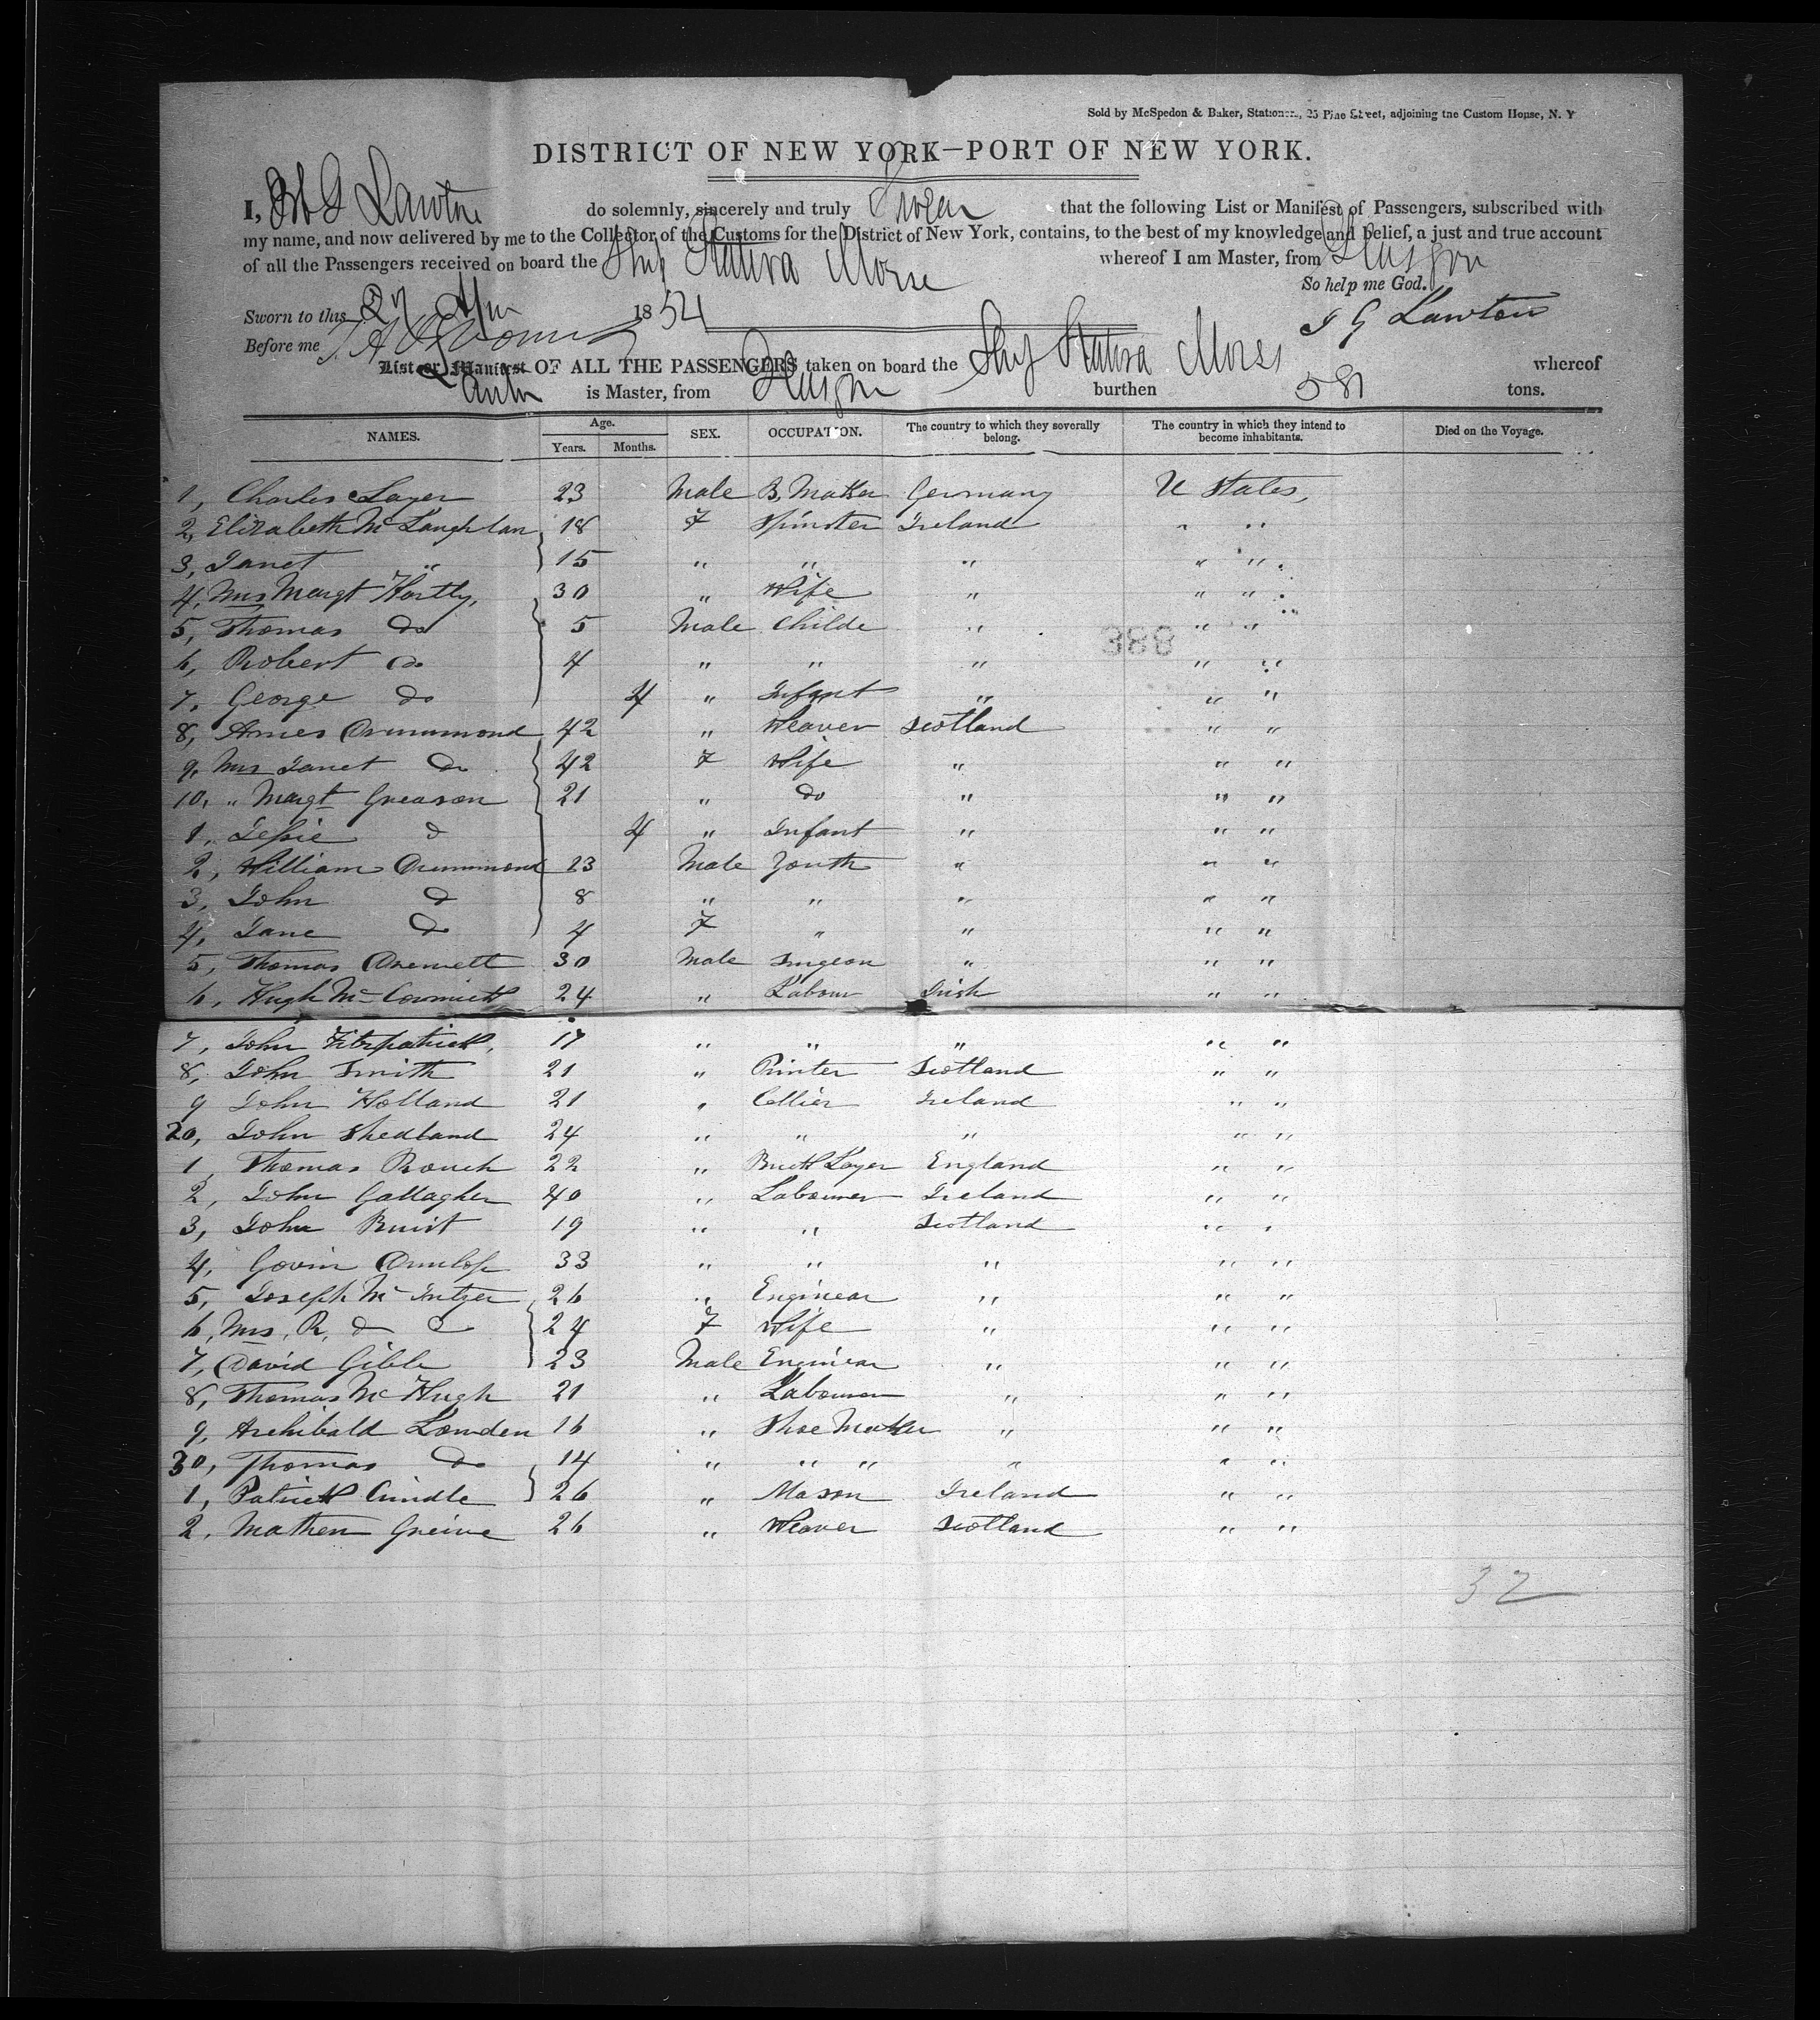 Sold by McSpedon & Baker, Stationers, 25 Pine Street, adjoining the Custom House, N. Y
DISTRICT OF NEW YORK—PORT OF NEW YORK.
I, G Lawton do solemnly, sincerely and truly Swear that the following List or Manifest of Passengers, subscribed with
my name, and now delivered by me to the Collector of the Customs for the District of New York, contains, to the best of my knowledge and belief, a just and true account
of all the Passengers received on board the Ship Statira Morse whereof I am Master, from Glasgow
So help me God.
Sworn to this 27 1854 G Lawton
Before me
List or Manifest OF ALL THE PASSENGERS taken on board the Ship Statira Morse whereof
is Master, from Glasgow burthen 581 tons.
NAMES. Age. Years. Months. SEX. OCCUPATION. The country to which they severally belong. The country in which they intend to become inhabitants. Died on the Voyage.
1, Charles Layer 23 Male B, Maker Germany U States,
2, Elizabeth Mc Laughlan 18 F Spinster Ireland " "
3, Janet " 15 " " " " "
4, Mrs Margt Hartly, 30 " Wife " " "
5, Thomas do 5 Male Childe " " "
6, Robert do 4 " " " " "
7, George do 4 " Infant " " "
388
8, Drummond 42 " Weaver Scotland " "
9, Mrs Janet do 42 F Wife " " "
10, " Margt Greason 21 " do " " "
1, Jessie d 4 " Infant " " "
2, William Drummond 23 Male Youth " " "
3, John do 8 " " " " "
4, Jane do 4 F " " " "
5, Thomas 30 Male Surgeon " " "
6, Hugh Mc Cormick 24 " Labour Irish " "
7, John Fitzpatrick, 17 " " " " "
8, John Smith 21 " Printer Scotland " "
9 John Holland 21 " Collier Ireland " "
20, John Shedland 24 " " " " "
1, Thomas Rouch 22 " Brick Layer England " "
2, John Gallagher 40 " Labourer Ireland " "
3, John Buist 19 " " Scotland " "
4, Govin Dunlop 33 " " " " "
5, Joseph Mc Intyer 26 " Enginear " " "
6, Mrs, R, do 24 F Wife " " "
7, David Gibb 23 Male Enginear " " "
8, Thomas Mc Hugh 21 " Labourer " " "
9, Archibald Lowden 16 " Shoe Maker " " "
30, Thomas do 14 " " " " " "
1, Patrick Crindle 26 " Mason Ireland " "
2, Mathew Greive 26 " Weaver Scotland " "
32